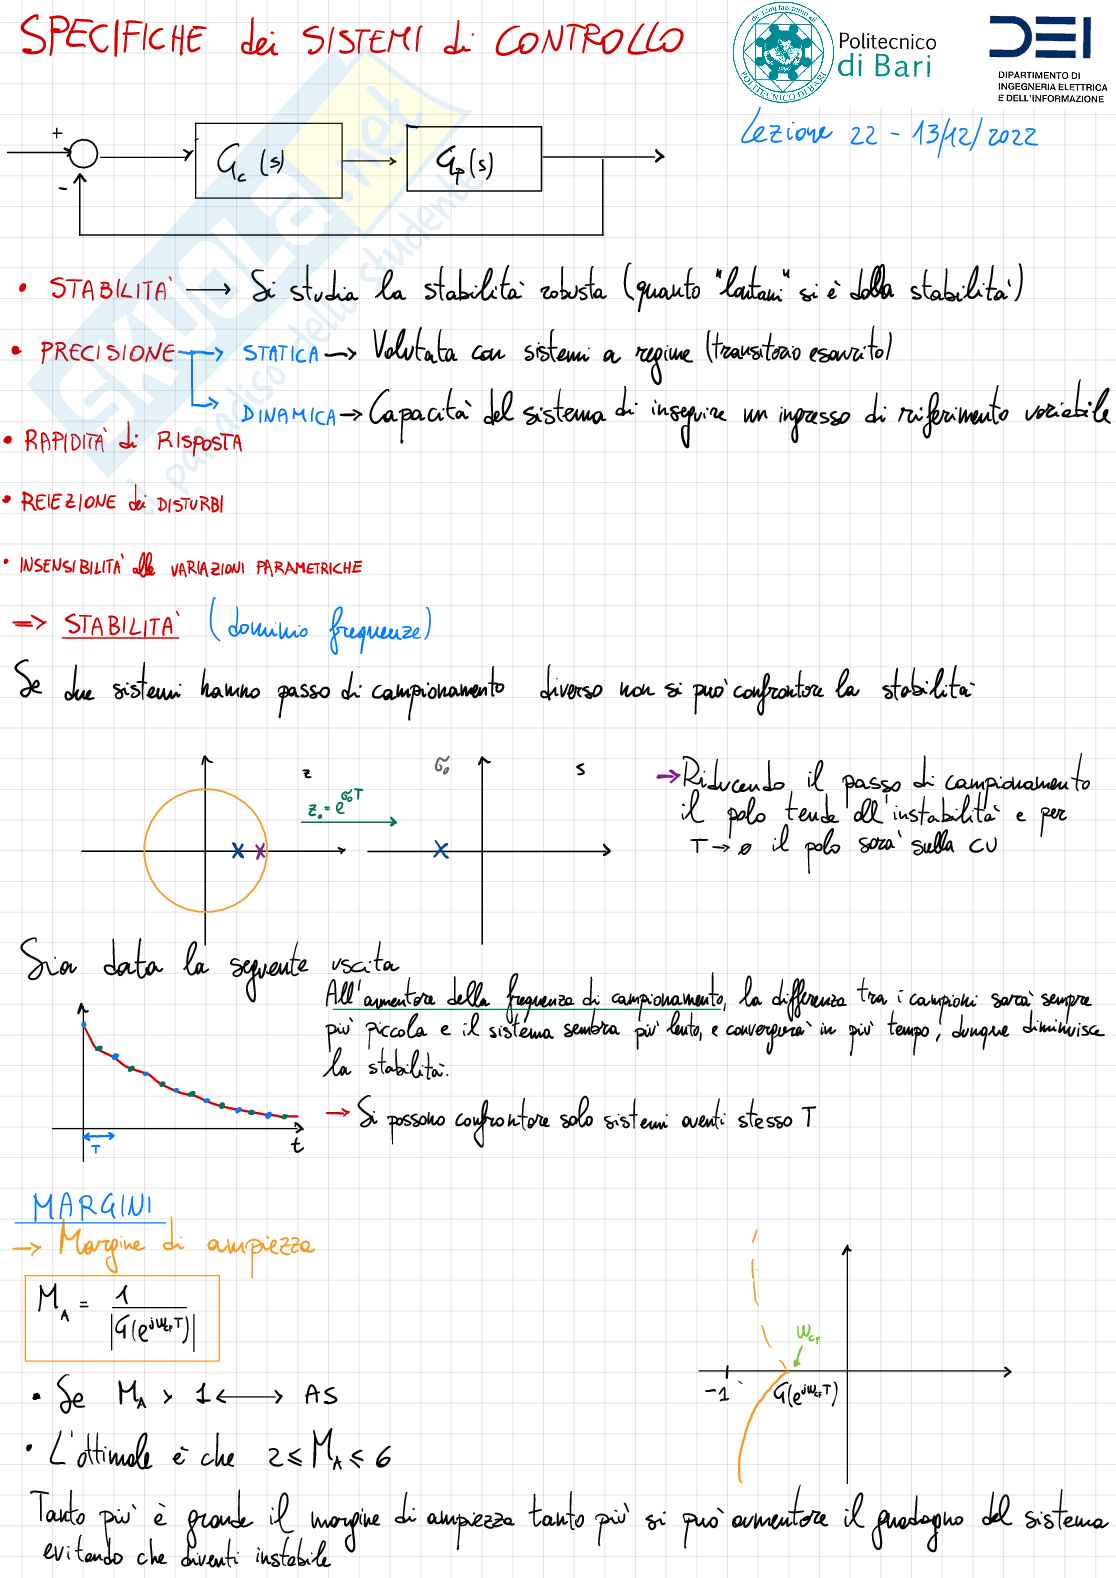 SPECIFICHE dei SISTEMI di CONTROLLO
POLITECNICO DI BARI
Politecnico
di Bari
DEI
DIPARTIMENTO DI
INGEGNERIA ELETTRICA
E DELL'INFORMAZIONE
Lezione 22 - 13/12/2022
+
-
Gc (s)
Gp (s)
SKUOLA.net
paradiso dello studente
• STABILITÀ → Si studia la stabilità robusta (quanto "lontani" si è dalla stabilità)
• PRECISIONE → STATICA → Valutata con sistemi a regime (transitorio esaurito)
→ DINAMICA → Capacità del sistema di inseguire un ingresso di riferimento variabile
• RAPIDITÀ di RISPOSTA
• REIEZIONE dei DISTURBI
• INSENSIBILITÀ alle VARIAZIONI PARAMETRICHE
=> STABILITÀ (dominio frequenze)
Se due sistemi hanno passo di campionamento diverso non si può confrontare la stabilità
z
z₀ = e^σ₀T
σ₀
s
→ Riducendo il passo di campionamento
il polo tende all'instabilità e per
T → ø il polo sarà sulla CU
Sia data la seguente uscita
All'aumentare della frequenza di campionamento, la differenza tra i campioni sarà sempre
più piccola e il sistema sembra più lento, e convergerà in più tempo, dunque diminuisce
la stabilità.
T
t
→ Si possono confrontare solo sistemi aventi stesso T
MARGINI
→ Margine di ampiezza
M_A = 1 / |G(e^jω_cr T)|
ω_cr
-1
G(e^jω_cr T)
• Se M_A > 1 ⟷ AS
• L'ottimale è che 2 ≤ M_A ≤ 6
Tanto più è grande il margine di ampiezza tanto più si può aumentare il guadagno del sistema
evitando che diventi instabile